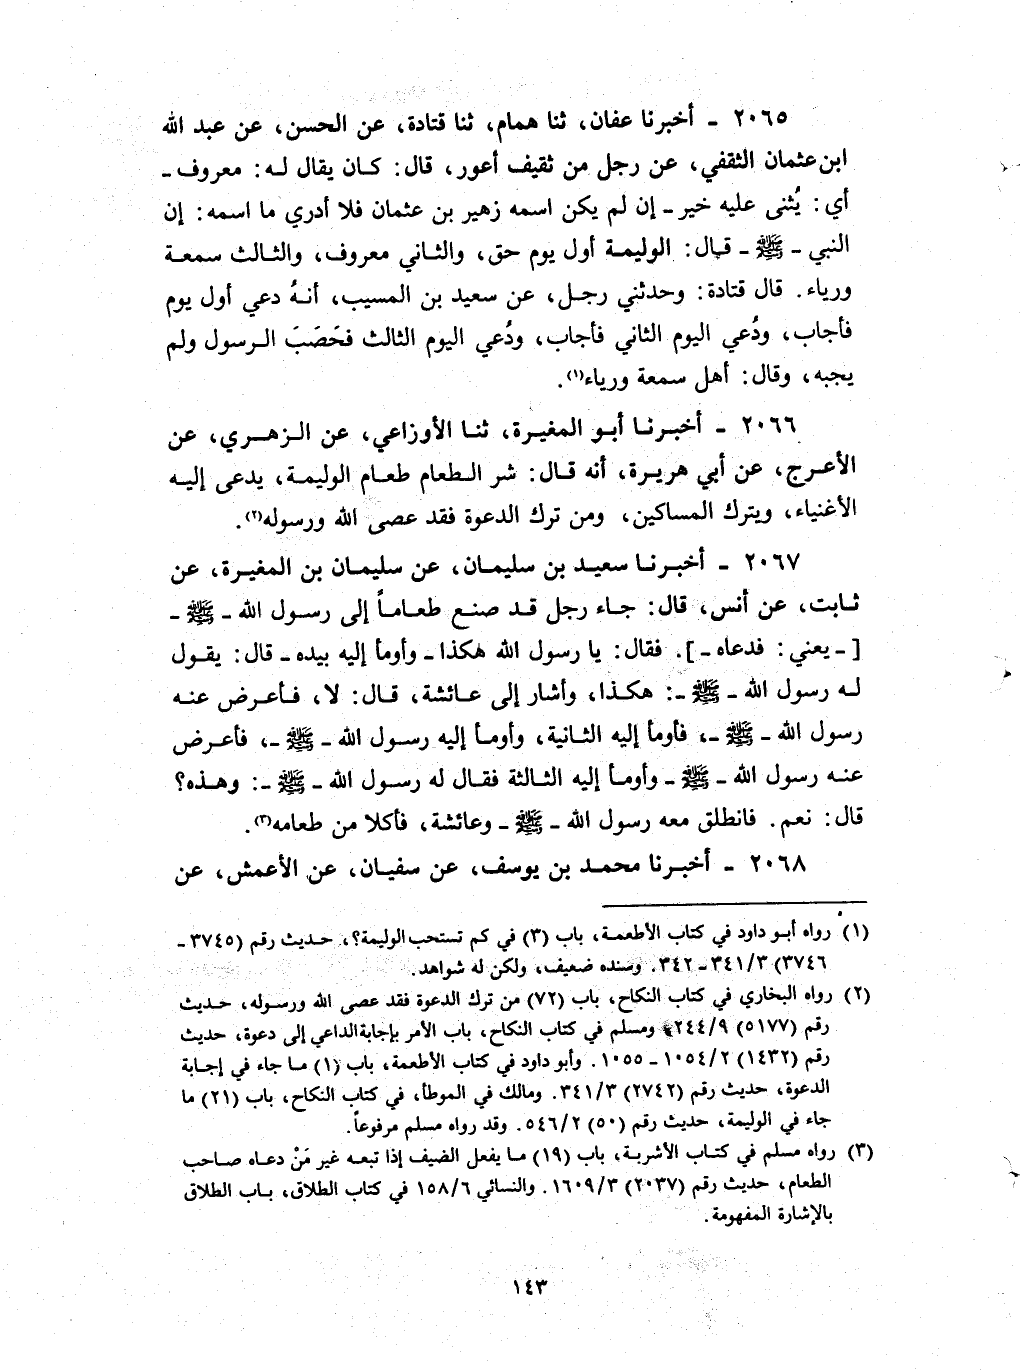 ٢٠٦٥ - أخبرنا عفان، ثنا همام، ثنا قتادة، عن الحسن، عن عبد الله
ابن عثمان الثقفي، عن رجل من ثقيف أعور، قال: كان يقال له: معروف -
أي: يُثنى عليه خير - إن لم يكن اسمه زهير بن عثمان فلا أدري ما اسمه: إن
النبي - ﷺ - قال: الوليمة أول يوم حق، والثاني معروف، والثالث سمعة
ورياء. قال قتادة: وحدثني رجل، عن سعيد بن المسيب، أنهُ دعي أول يوم
فأجاب، ودُعي اليوم الثاني فأجاب، ودُعي اليوم الثالث فحَصَبَ الرسول ولم
يجبه، وقال: أهل سمعة ورياء(١).
٢٠٦٦ - أخبرنا أبو المغيرة، ثنا الأوزاعي، عن الزهري، عن
الأعرج، عن أبي هريرة، أنه قال: شر الطعام طعام الوليمة، يدعى إليه
الأغنياء، ويترك المساكين، ومن ترك الدعوة فقد عصى الله ورسوله(٢).
٢٠٦٧ - أخبرنا سعيد بن سليمان، عن سليمان بن المغيرة، عن
ثابت، عن أنس، قال: جاء رجل قد صنع طعاماً إلى رسول الله - ﷺ -
[- يعني: فدعاه -]. فقال: يا رسول الله هكذا - وأومأ إليه بيده - قال: يقول
له رسول الله - ﷺ -: هكذا، وأشار إلى عائشة، قال: لا، فأعرض عنه
رسول الله - ﷺ -، فأومأ إليه الثانية، وأومأ إليه رسول الله - ﷺ -، فأعرض
عنه رسول الله - ﷺ - وأومأ إليه الثالثة فقال له رسول الله - ﷺ -: وهذه؟
قال: نعم. فانطلق معه رسول الله - ﷺ - وعائشة، فأكلا من طعامه(٣).
٢٠٦٨ - أخبرنا محمد بن يوسف، عن سفيان، عن الأعمش، عن
(١) رواه أبو داود في كتاب الأطعمة، باب (٣) في كم تستحب الوليمة؟، حديث رقم (٣٧٤٥ -
٣٧٤٦) ٣٤١/٣ - ٣٤٢. وسنده ضعيف، ولكن له شواهد.
(٢) رواه البخاري في كتاب النكاح، باب (٧٢) من ترك الدعوة فقد عصى الله ورسوله، حديث
رقم (٥١٧٧) ٢٤٤/٩ ومسلم في كتاب النكاح، باب الأمر بإجابة الداعي إلى دعوة، حديث
رقم (١٤٣٢) ١٠٥٤/٢ - ١٠٥٥. وأبو داود في كتاب الأطعمة، باب (١) ما جاء في إجابة
الدعوة، حديث رقم (٢٧٤٢) ٣٤١/٣. ومالك في الموطأ، في كتاب النكاح، باب (٢١) ما
جاء في الوليمة، حديث رقم (٥٠) ٥٤٦/٢. وقد رواه مسلم مرفوعاً.
(٣) رواه مسلم في كتاب الأشربة، باب (١٩) ما يفعل الضيف إذا تبعه غير مَنْ دعاه صاحب
الطعام، حديث رقم (٢٠٣٧) ١٦٠٩/٣. والنسائي ١٥٨/٦ في كتاب الطلاق، باب الطلاق
بالإشارة المفهومة.
١٤٣